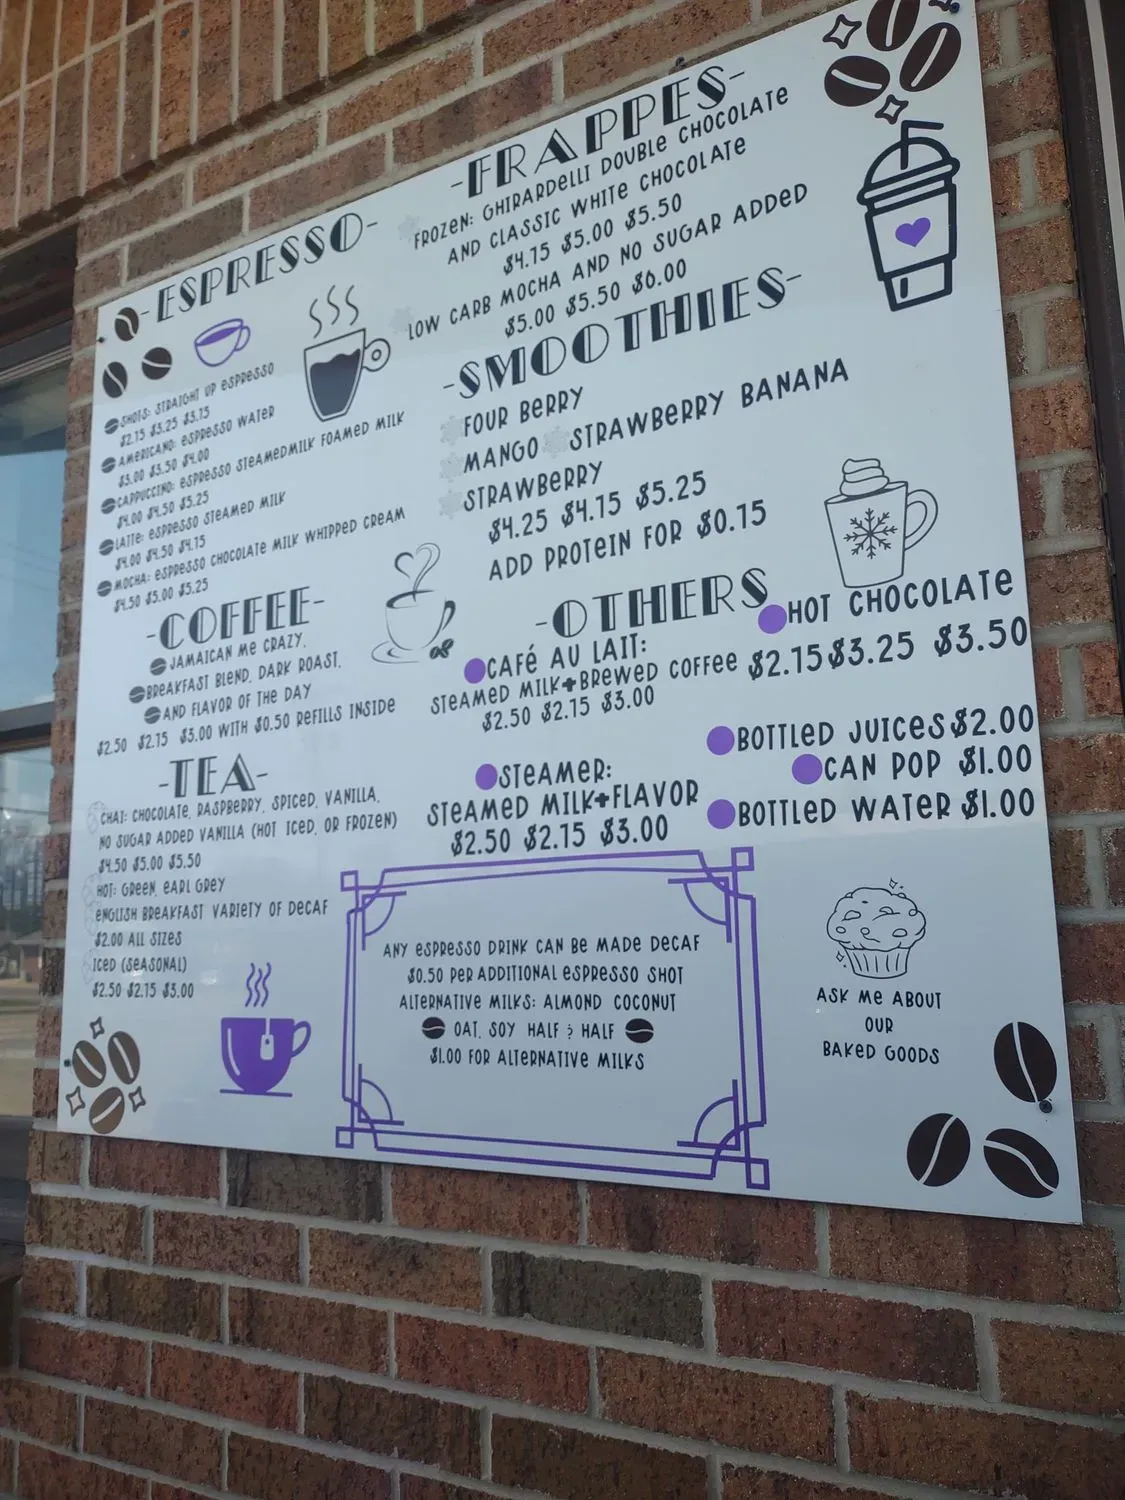 -ESPRESSO-
SHOTS: STRAIGHT UP ESPRESSO
$2.75 $3.25 $3.75
AMERICANO: ESPRESSO WATER
$3.00 $3.50 $4.00
CAPPUCCINO: ESPRESSO STEAMEDMILK FOAMED MILK
$4.00 $4.50 $5.25
LATTE: ESPRESSO STEAMED MILK
$4.00 $4.50 $4.75
MOCHA: ESPRESSO CHOCOLATE MILK WHIPPED CREAM
$4.50 $5.00 $5.25
-COFFEE-
JAMAICAN ME CRAZY,
BREAKFAST BLEND, DARK ROAST,
AND FLAVOR OF THE DAY
$2.50 $2.75 $3.00 WITH $0.50 REFILLS INSIDE
-TEA-
CHAI: CHOCOLATE, RASPBERRY, SPICED, VANILLA,
NO SUGAR ADDED VANILLA (HOT ICED, OR FROZEN)
$4.50 $5.00 $5.50
HOT: GREEN, EARL GREY
ENGLISH BREAKFAST VARIETY OF DECAF
$2.00 ALL SIZES
ICED (SEASONAL)
$2.50 $2.75 $3.00
-FRAPPES-
FROZEN: GHIRARDELLI DOUBLE CHOCOLATE
AND CLASSIC WHITE CHOCOLATE
$4.75 $5.00 $5.50
LOW CARB MOCHA AND NO SUGAR ADDED
$5.00 $5.50 $6.00
-SMOOTHIES-
FOUR BERRY
MANGO STRAWBERRY BANANA
STRAWBERRY
$4.25 $4.75 $5.25
ADD PROTEIN FOR $0.75
-OTHERS
CAFÉ AU LAIT:
STEAMED MILK+BREWED COFFEE
$2.50 $2.75 $3.00
STEAMER:
STEAMED MILK+FLAVOR
$2.50 $2.75 $3.00
HOT CHOCOLATE
$2.75$3.25 $3.50
BOTTLED JUICES$2.00
CAN POP $1.00
BOTTLED WATER $1.00
ANY ESPRESSO DRINK CAN BE MADE DECAF
$0.50 PER ADDITIONAL ESPRESSO SHOT
ALTERNATIVE MILKS: ALMOND COCONUT
OAT, SOY HALF & HALF
$1.00 FOR ALTERNATIVE MILKS
ASK ME ABOUT
OUR
BAKED GOODS